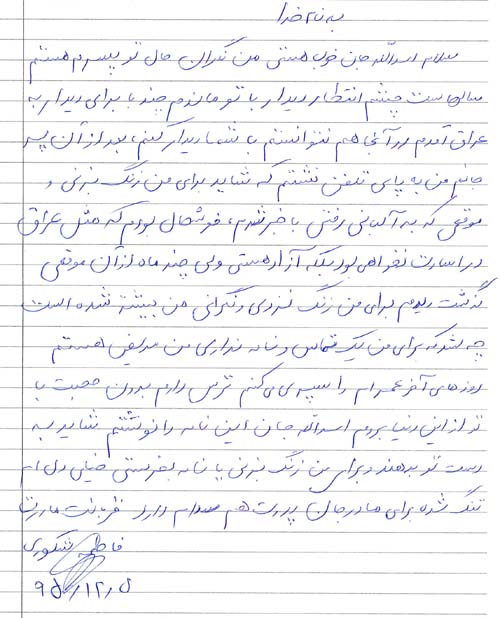 به نام خدا
سلام اسدالله جان خوب هستی من نگران حال تو پسرم هستم
سالهاست چشم انتظار دیدار با تو ماندم چند با برای دیدار به
عراق آمدم در آنجا هم نتوانستم با شما دیدار کنم، بعد از آن پسر
جانم من به پای تلفن نشتم که شاید برای من زنگ بزنی و
موقعی که به آلبانی رفتی با خبر شدم، خوشحال بودم که مثل عراق
در اسارت نخواهی بود دیگه آزاد هستی ولی چند ماه از آن موقعی
گذشت دیدم برای من زنگ نزدی و نگرانی من بیشتر شده است
چه شد که برای من یک تماس و نامه نداری من مریض هستم
روزهای آخر عمرام را سپری می کنم ترس دارم بدون صحبت با
تو از این دنیا بروم اسدالله جان این نامه را نوشتم شاید به
دست تو بدهند و برای من زنگ بزنی یا نامه بفرستی خیلی دل ام
تنگ شده برای مادر جان پدرت هم سلام دارد قربانت مادرت
فاطمه شکوری
۹۵/۱۲/۵